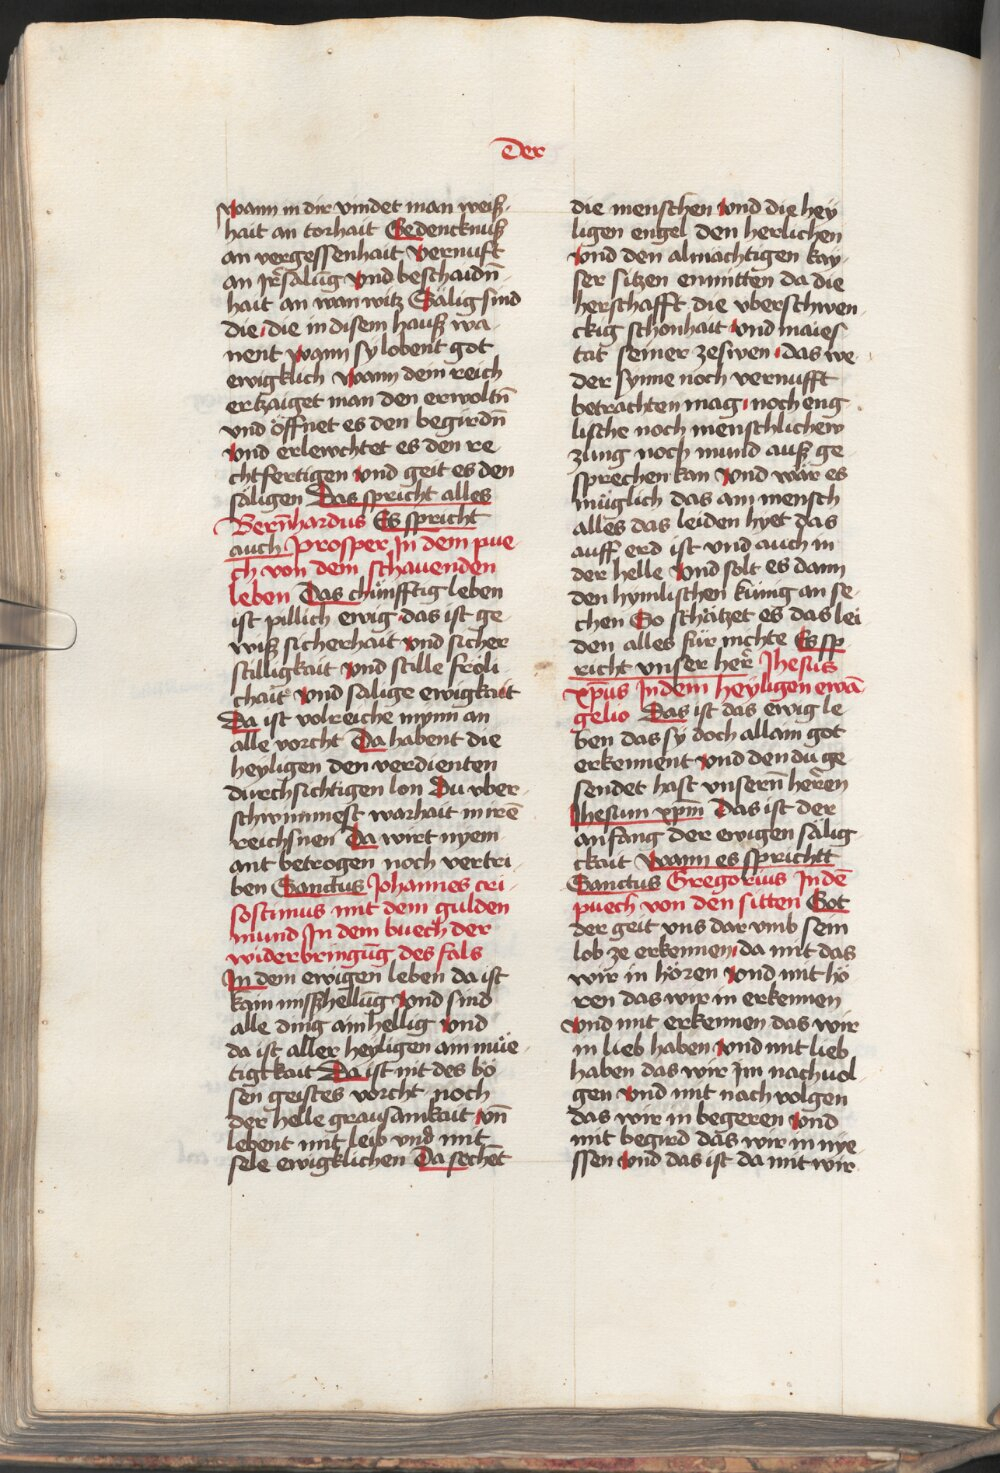 Der
wann in dir vindet man weiß-
hait an torhait Gedencknuß
an vergessenhait vernuft
an jrr̃salūg vnd beschaidñ-
hait an wan witz Sälig sind
die die in disem hauß wa-
nent wann sy lobent got
ewigklich wann dem reich
erkzaiget man den erwoltñ
vnd öffnet es den begirdñ
vnd erlewchtet es den re
chtfertigen vnd geit es den
säligen Das spricht alles
Bern̄hardus Es spricht
auch Prosper Jn dem pue-
ch von dem schauenden
leben Das chünfftig leben
ist pillich ewig das ist ge-
wiß sicherhait vnd sicher
stilligkait vnd stille fröli-
chait vnd sälige ewigkait
Da ist volreiche mynn an
alle vorcht Da habent die
heyligen den verdienten
durchsichtigen lon Du vber-
schwimmest warhait in irē
reichsnen Da wirt nyem-
ant betrogen noch vertri-
ben Sanctus Johannes cri-
sostimus mit dem gulden
mund Jn dem buech der
widerbringūg des fals
Jn dem ewigen leben da ist
kain misßhellūg vnd sind
alle ding ainhellig vnd
da ist aller heyligen ain müe-
tigkait Da ist nit des bö
sen geistes vorcht noch
der helle grausamkait vn̄
lebent mit leib vnd mit
sele ewigklichen Da sechēt
die menschen vnd die hey
ligen engel den herlichen
vnd den almächtigen kay-
ser sitzen enmitten da die
herschafft die vberschwen
ckig schonhait vnd maies
tat seiner zeswen das we-
der synne noch vernufft
betrachten mag noch eng
lische noch menschlichew
zung noch mund auß ge-
sprechen kan vnd wär es
müglich das ain mensch
alles das leiden hyet das
auff erd ist vnd auch in
der helle vnd solt es dann
den hymlischen künig an se-
chen So schätzet es das lei
den alles für nichte Es sp̄
richt vnser her̄ Jhesus
xp̄us Jn dem heyligen ewā-
gelio Das ist das ewig le
ben das sy doch allain got
erkennent vnd den du ge-
sendet hast vnsern̄ herr̄en
Jhesum xp̄m Das ist der
anfang der ewigen sälig
ckait Wann es sprichtt
Sanctus Gregorius Jn dē
puech von den sitten Got
der geit vns dar vmb sein
lob ze erkennen da mit das
wir in hören vnd mit hö
ren das wir in erkennen
vnd mit erkennen das wir
in lieb haben vnd mit lieb
haben das wir Jm nachuol-
gen vnd mit nach volgen
das wir in begeren vnd
mit begird das wir in nye
ssen vnd das ist da mit wir